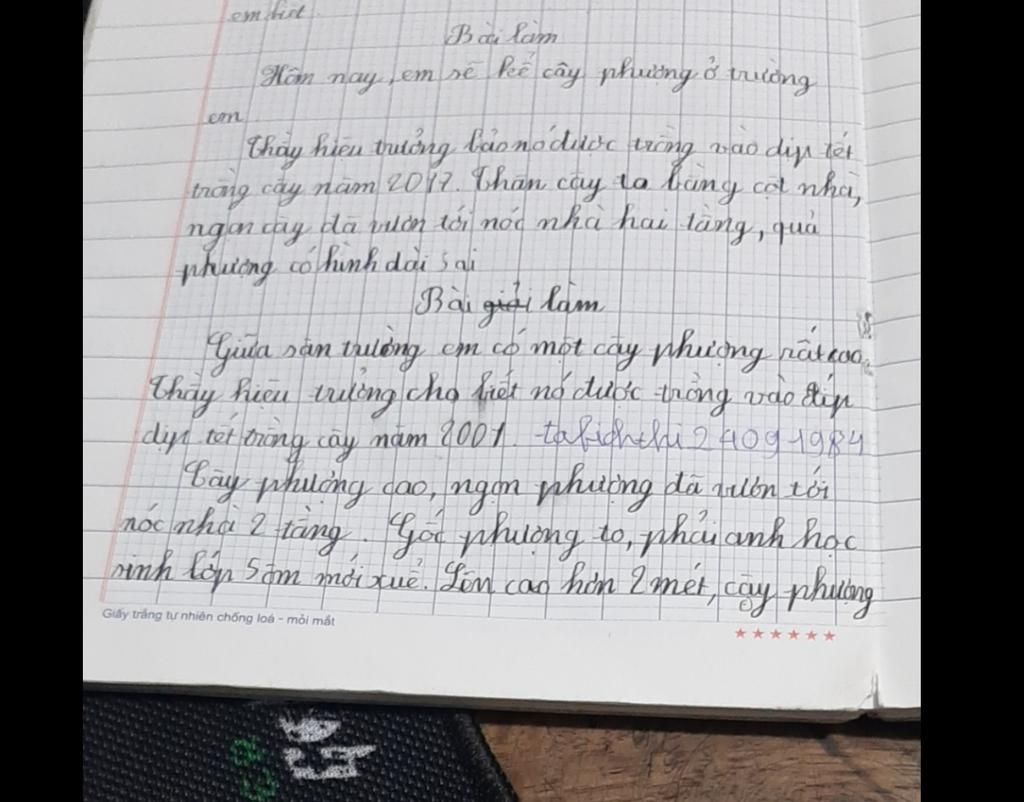 em biết.
Bài làm
Hôm nay, em sẽ kể cây phượng ở trường
em
Thầy hiệu trưởng bảo nó được trồng vào dịp tết
trồng cây năm 2017. Thân cây to bằng cột nhà,
ngọn cây đã vươn tới nóc nhà hai tầng, quả
phượng có hình dài sai
Bài giải làm
Giữa sân trường em có một cây phượng rất cao.
Thầy hiệu trưởng cho biết nó được trồng vào dịp
dịp tết trồng cây năm 2001.
Cây phượng cao, ngọn phượng đã vươn tới
nóc nhà 2 tầng. Gốc phượng to, phải anh học
sinh lớp 5 ôm mới xuể. Lên cao hơn 2 mét, cây phượng
Giấy trắng tự nhiên chống loá - mỏi mắt